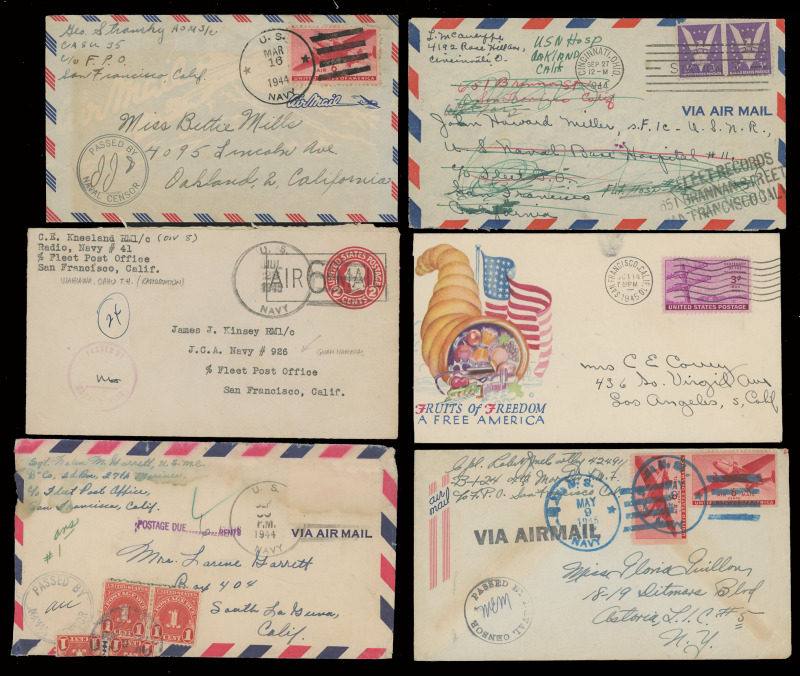 Geo. Stransky AOM3/c
CASU 35
c/o F.P.O.
San Francisco, Calif.
U. S.
MAR
16
1944
NAVY
UNITED STATES OF AMERICA
Air Mail
Miss Bettie Mills
4095 Lincoln Ave
Oakland, 2, California
PASSED BY
NAVAL CENSOR
4192 Rose Hill Ave,
Cincinnati O.
USN Hosp
OAKLAND
CALIF
CINCINNATI, OHIO
SEP 27
12-M
1944
VIA AIR MAIL
651 Brannan St
San Francisco Calif
John Howard Miller, S.F. 1C - U.S.N.R.,
U S Naval Base Hospital #11
c/o Fleet P.O.
San Francisco
California
FLEET RECORDS
651 BRANNAN STREET
SAN FRANCISCO CALIF
C. E. Kneeland RM1/c (DIV 5)
Radio, Navy # 41
% Fleet Post Office
San Francisco, Calif.
WAHIAWA, OAHU T.H.
U. S.
JUL
1945
NAVY
AIR 6 MAIL
UNITED STATES POSTAGE
2 CENTS 2
24
PASSED BY
James J. Kinsey RM1/c
J.C.A. Navy # 926
% Fleet Post Office
San Francisco, Calif.
SAN FRANCISCO, CALIF.
OCT 14
7 PM
1945
3¢
UNITED STATES POSTAGE
FRUITS OF FREEDOM
A FREE AMERICA
Mrs C E Correy
436 So. Virgil Ave
Los Angeles, 5, Calif
Sgt. M. Garrett, U.S.M.C.
Co, 2d Bn, 27th Marines,
c/o Fleet Post Office,
San Francisco, Calif.
ans
#1
POSTAGE DUE CENTS
U. S.
SEP
30
P.M.
1944
NAVY
VIA AIR MAIL
Mrs. Larene Garrett
Box 404
South Laguna,
Calif.
PASSED BY
NAVAL CENSOR
POSTAGE DUE
1
CENT
1 CENT 1
Cpl. Robert 42491
c/o F.P.O. San Francisco Cal
air
mail
VIA AIRMAIL
U. S.
MAY
9
1945
NAVY
PASSED BY
NAVAL CENSOR
Miss Gloria Guillou
18-19 Ditmars Blvd
Astoria, L.I.C. #5
N.Y.